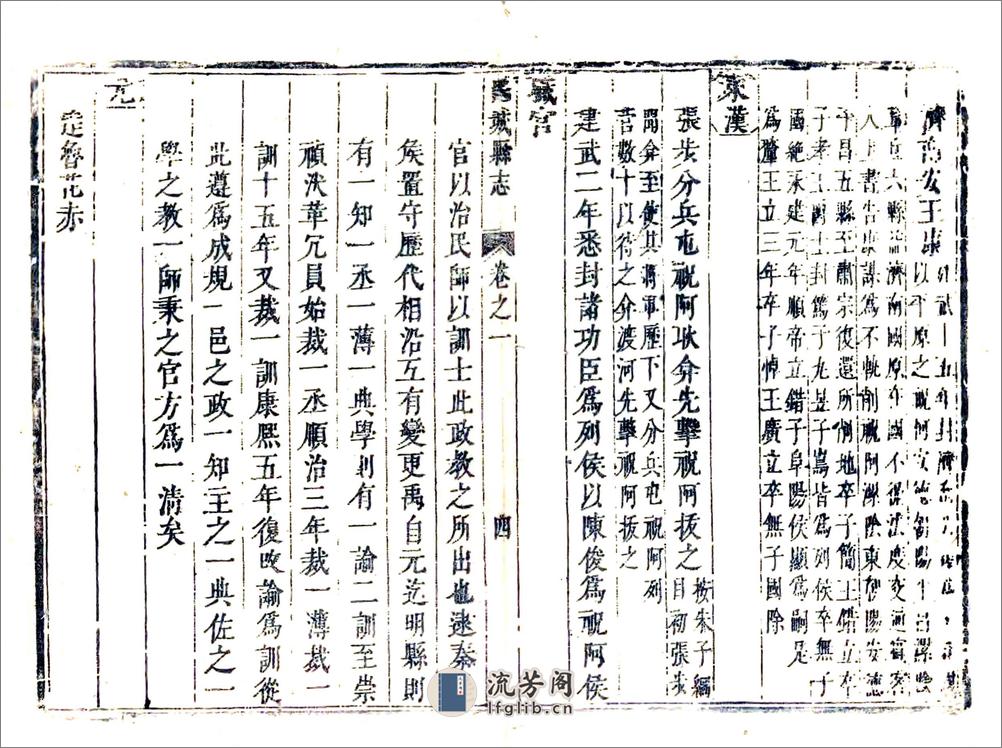 濟南安王康
以平原之祝阿安德朝陽平昌隰陰
重丘六縣益濟南國康在國不循法度交通賓客
人上書告康謀為不軌削祝阿隰陰東朝陽安德
平昌五縣至肅宗復還所削地卒子簡王錯立卒
子孝王香立封篤子丸昱子嵩皆為列侯卒無子
國絕永建元年順帝立錯子阜陽侯顯為嗣是
為釐王立三年卒子悼王廣立卒無子國除
東漢
張步分兵屯祝阿耿弇先擊祝阿拔之
按朱子綱
目初張步
聞弇至使其將軍歷下又分兵屯祝阿列
營數十以待之弇渡河先擊祝阿拔之
建武二年悉封諸功臣為列侯以陳俊為祝阿侯
職官
禹城縣志
卷之一
四
官以治民師以訓士此政教之所出也逮秦
侯置守歷代相沿互有變更禹自元迄明縣則
有一知一丞一薄一典學則有一諭二訓至崇
禎汰革冗員始裁一丞順治三年裁一薄裁一
訓十五年又裁一訓康熙五年復改諭為訓從
此遵為成規一邑之政一知主之一典佐之一
學之教一師秉之官方為一清矣
元
達魯花赤
流芳阁
lfglib.cn